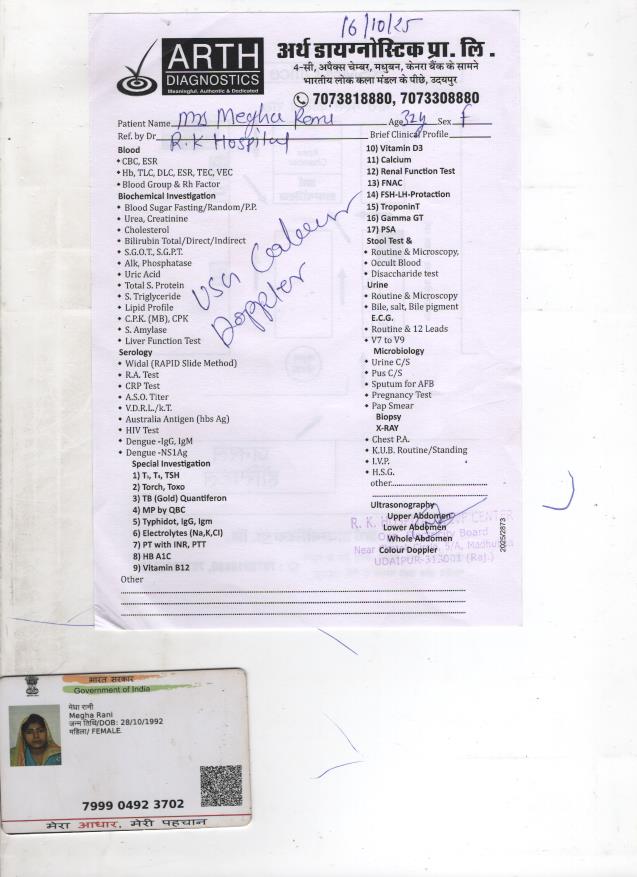 16/10/25
ARTH
DIAGNOSTICS
Meaningful, Authentic & Dedicated
अर्थ डायग्नोस्टिक प्रा. लि .
4-सी, अपैक्स चेम्बर, मधुबन, केनरा बैंक के सामने
भारतीय लोक कला मंडल के पीछे, उदयपुर
7073818880, 7073308880
Patient Name Mrs Megha Rani Age 32y Sex F
Ref. by Dr R.K Hospital Brief Clinical Profile
Blood
CBC, ESR
Hb, TLC, DLC, ESR, TEC, VEC
Blood Group & Rh Factor
Biochemical Investigation
Blood Sugar Fasting/Random/P.P.
Urea, Creatinine
Cholesterol
Bilirubin Total/Direct/Indirect
S.G.O.T., S.G.P.T.
Alk, Phosphatase
Uric Acid
Total S. Protein
S. Triglyceride
Lipid Profile
C.P.K. (MB), CPK
S. Amylase
Liver Function Test
Serology
Widal (RAPID Slide Method)
R.A. Test
CRP Test
A.S.O. Titer
V.D.R.L./k.T.
Australia Antigen (hbs Ag)
HIV Test
Dengue -IgG, IgM
Dengue -NS1Ag
Special Investigation
1) T₃, T₄, TSH
2) Torch, Toxo
3) TB (Gold) Quantiferon
4) MP by QBC
5) Typhidot, IgG, Igm
6) Electrolytes (Na,K,Cl)
7) PT with INR, PTT
8) HB A1C
9) Vitamin B12
Other
USG Colour
Doppler
10) Vitamin D3
11) Calcium
12) Renal Function Test
13) FNAC
14) FSH-LH-Protaction
15) TroponinT
16) Gamma GT
17) PSA
Stool Test &
Routine & Microscopy,
Occult Blood
Disaccharide test
Urine
Routine & Microscopy
Bile, salt, Bile pigment
E.C.G.
Routine & 12 Leads
V7 to V9
Microbiology
Urine C/S
Pus C/S
Sputum for AFB
Pregnancy Test
Pap Smear
Biopsy
X-RAY
Chest P.A.
K.U.B. Routine/Standing
I.V.P.
H.S.G.
other
Ultrasonography
Upper Abdomen
Lower Abdomen
Whole Abdomen
Colour Doppler
R. K. CENTER
Board
Near 5/A, Madhu
UDAIPUR-313001 (Raj.)
2025/2873
भारत सरकार
Government of India
मेघा रानी
Megha Rani
जन्म तिथि/DOB: 28/10/1992
महिला/ FEMALE
7999 0492 3702
मेरा आधार, मेरी पहचान